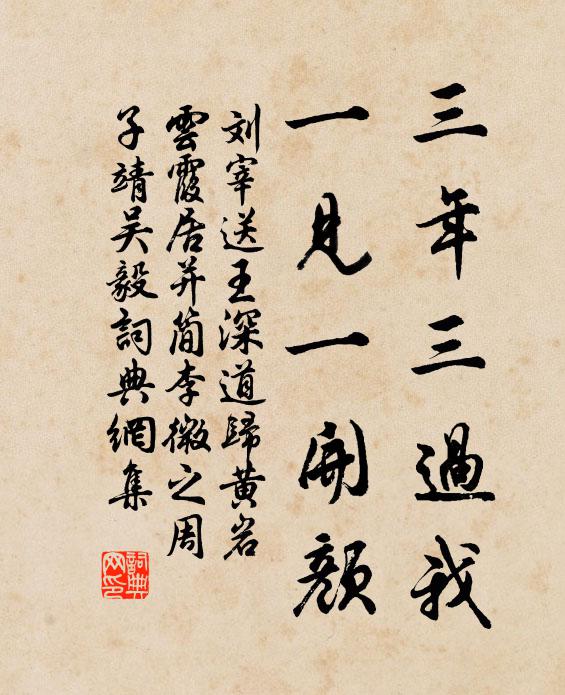 三年三過我
一見一開顏
刘宰送王深道歸黄岩
雲霞居并简李微之周
子靖吴毅詞典網集
詞典网印